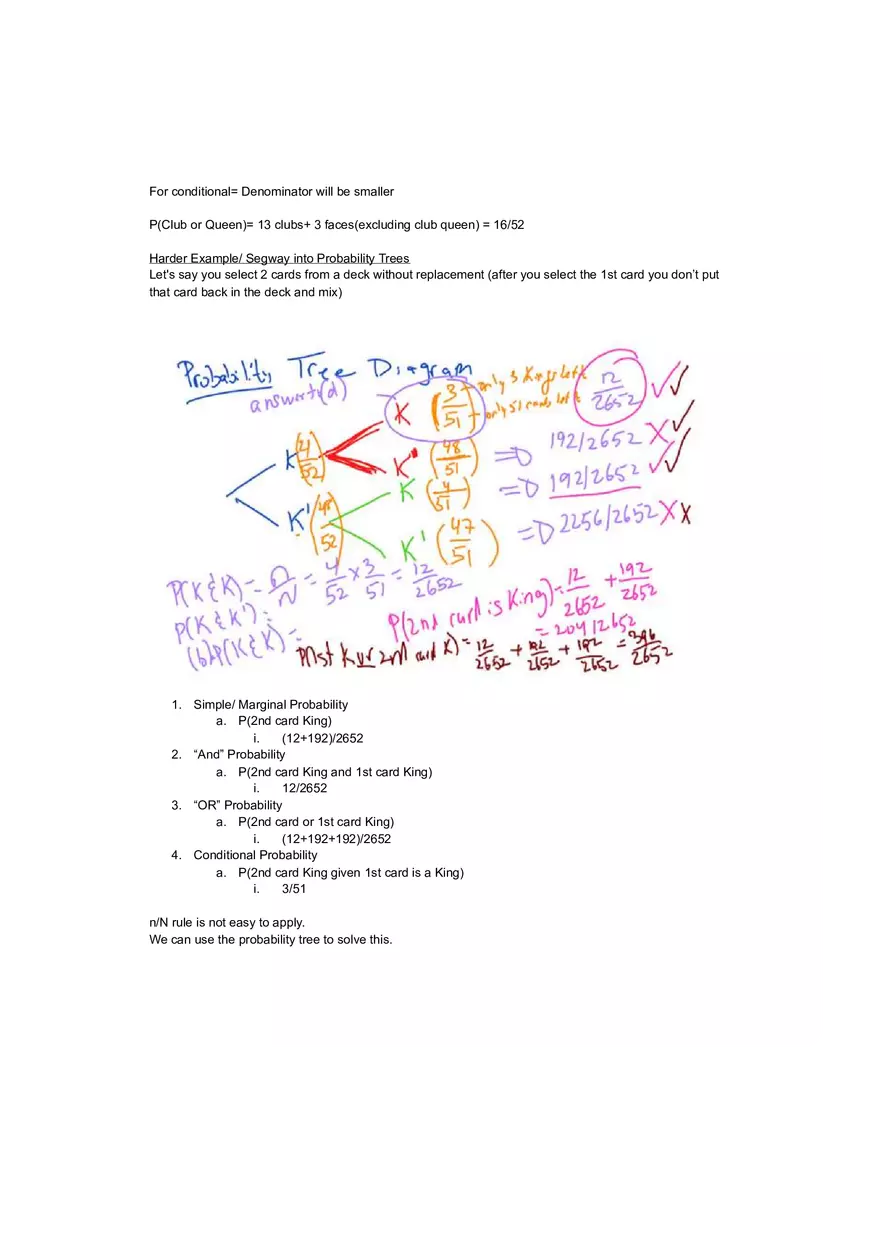 For conditional= Denominator will be smaller
P(Club or Queen)= 13 clubs+ 3 faces(excluding club queen) = 16/52
Harder Example/ Segway into Probability Trees
Let's say you select 2 cards from a deck without replacement (after you select the 1st card you don’t put
that card back in the deck and mix)
Probability Tree Diagram
answer to (d)
K (3/51) only 3 Kings left 12/2652
only 51 cards left
K (4/52)
K' (48/51) => 192/2652 X
K (4/51) => 192/2652
K' (48/52)
K' (47/51) => 2256/2652 X X
P(K & K) = n/N = 4/52 x 3/51 = 12/2652
P(K & K') =
(b) P(K & K) =
P(2nd card is King) = 12/2652 + 192/2652
= 204/2652
P(1st K or 2nd card K) = 12/2652 + 192/2652 + 192/2652 = 396/2652
1. Simple/ Marginal Probability
a. P(2nd card King)
i. (12+192)/2652
2. “And” Probability
a. P(2nd card King and 1st card King)
i. 12/2652
3. “OR” Probability
a. P(2nd card or 1st card King)
i. (12+192+192)/2652
4. Conditional Probability
a. P(2nd card King given 1st card is a King)
i. 3/51
n/N rule is not easy to apply.
We can use the probability tree to solve this.